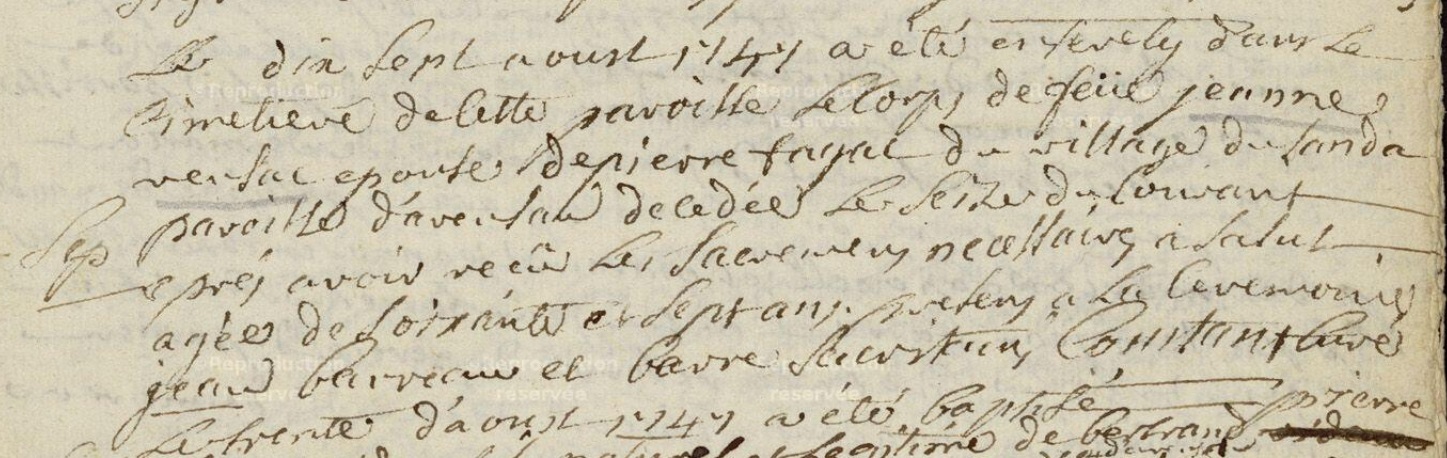 Le dix sept aoust 1747 a été ensevely dans Le
Cimetiere de Cette paroisse Le Corps de feüe jeanne
versac epouse de pierre fagac du village du Landa
Sep
paroisse d'avensan decedée Le Seize du Courant
eprés avoir reçû Les Sacremens necessaires a Salut
agée de Soixante et Sept ans. presens a La Ceremonie
jean barreau et barre Sacristain, Constant Curé
Le trente d'aoust 1747 a été baptisé pierre
naturel et Legitime de bertrand